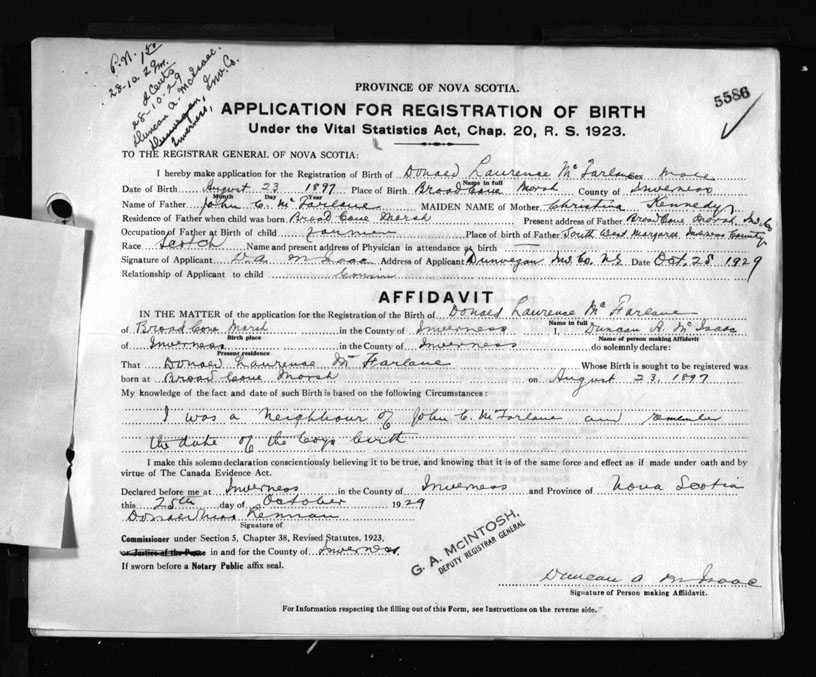 P.N. 1 50
28-10-29 m.
2 Certs
28-10-29
Duncan A. McIsaac.
Dunvegan,
Inverness, Inv. Co.
5586
PROVINCE OF NOVA SCOTIA.
APPLICATION FOR REGISTRATION OF BIRTH
Under the Vital Statistics Act, Chap. 20, R. S. 1923.
TO THE REGISTRAR GENERAL OF NOVA SCOTIA:
I hereby make application for the Registration of Birth of Donald Laurence McFarlane Sex Male
Name in full
Date of Birth August 23 1897 Place of Birth Broad Cove Marsh County of Inverness
Month Day Year
Name of Father John C. McFarlane MAIDEN NAME of Mother Christina Kennedy
Residence of Father when child was born Broad Cove Marsh Present address of Father Broad Cove Marsh Inv. Co
Occupation of Father at Birth of child Farmer Place of birth of Father South West Margaree Inverness County
Race Scotch Name and present address of Physician in attendance at birth —
Signature of Applicant D. A. McIsaac Address of Applicant Dunvegan Inv. Co. N.S Date Oct. 28 1929
Relationship of Applicant to child Cousin
AFFIDAVIT
IN THE MATTER of the application for the Registration of the Birth of Donald Laurence McFarlane
Name in full
of Broad Cove Marsh in the County of Inverness I, Duncan A. McIsaac
Birth place Name of person making Affidavit
of Inverness in the County of Inverness do solemnly declare:
Present residence
That Donald Laurence McFarlane Whose Birth is sought to be registered was
born at Broad Cove Marsh on August 23, 1897
My knowledge of the fact and date of such Birth is based on the following Circumstances:
I was a neighbour of John C. McFarlane and remember
the date of the boys birth
I make this solemn declaration conscientiously believing it to be true, and knowing that it is of the same force and effect as if made under oath and by
virtue of The Canada Evidence Act.
Declared before me at Inverness in the County of Inverness and Province of Nova Scotia
this 28th day of October 1929
Signature of
Commissioner under Section 5, Chapter 38, Revised Statutes, 1923,
or Justice of the Peace in and for the County of Inverness
If sworn before a Notary Public affix seal.
G. A. McINTOSH,
DEPUTY REGISTRAR GENERAL
Duncan A McIsaac
Signature of Person making Affidavit.
For Information respecting the filling out of this Form, see Instructions on the reverse side.